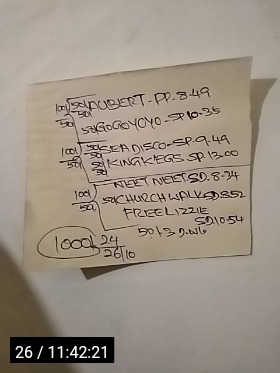 100 50 AUBERT - PP. 8.49
50 50
50 GOGOYOYO - SP 10.35
100 50 SEADISCO - SP. 9.49
50 50 KINGKIEGS SP. 13.00
100 NEETNEET SD. 8-34
50 50 CHURCHWALK SD 8.52
FREELIZZIE
SD 10.54
50 1.3 D.WG
1000 24
26/10
26 / 11:42:21